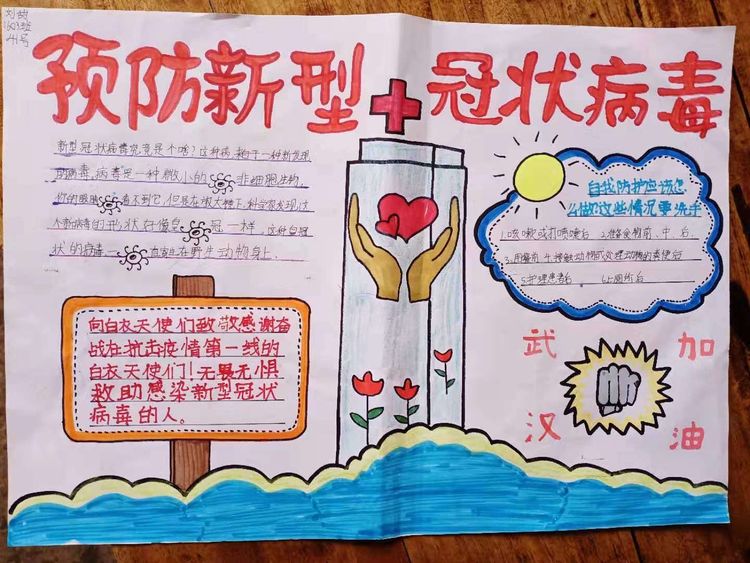 1603班
41号
预防新型冠状病毒
新型冠状病毒究竟是个啥?这种病
病毒,病毒是一种微小的非细胞生物,
你的眼睛看不到它,
个新病毒的形状好像皇冠一样,这种
状的病毒一直寄生在野生动物身上.
自我防护应该怎
么做?这些情况要洗手
1.咳嗽或打喷嚏后 2.准备食物前、中、后
3.用餐前 4.接触动物或处理动物的粪便后
5.护理患者后 6.上厕所后
向白衣天使们致敬感谢奋
战在抗击疫情第一线的
白衣天使们!无畏无惧
救助感染新型冠状
病毒的人。
武汉
加油